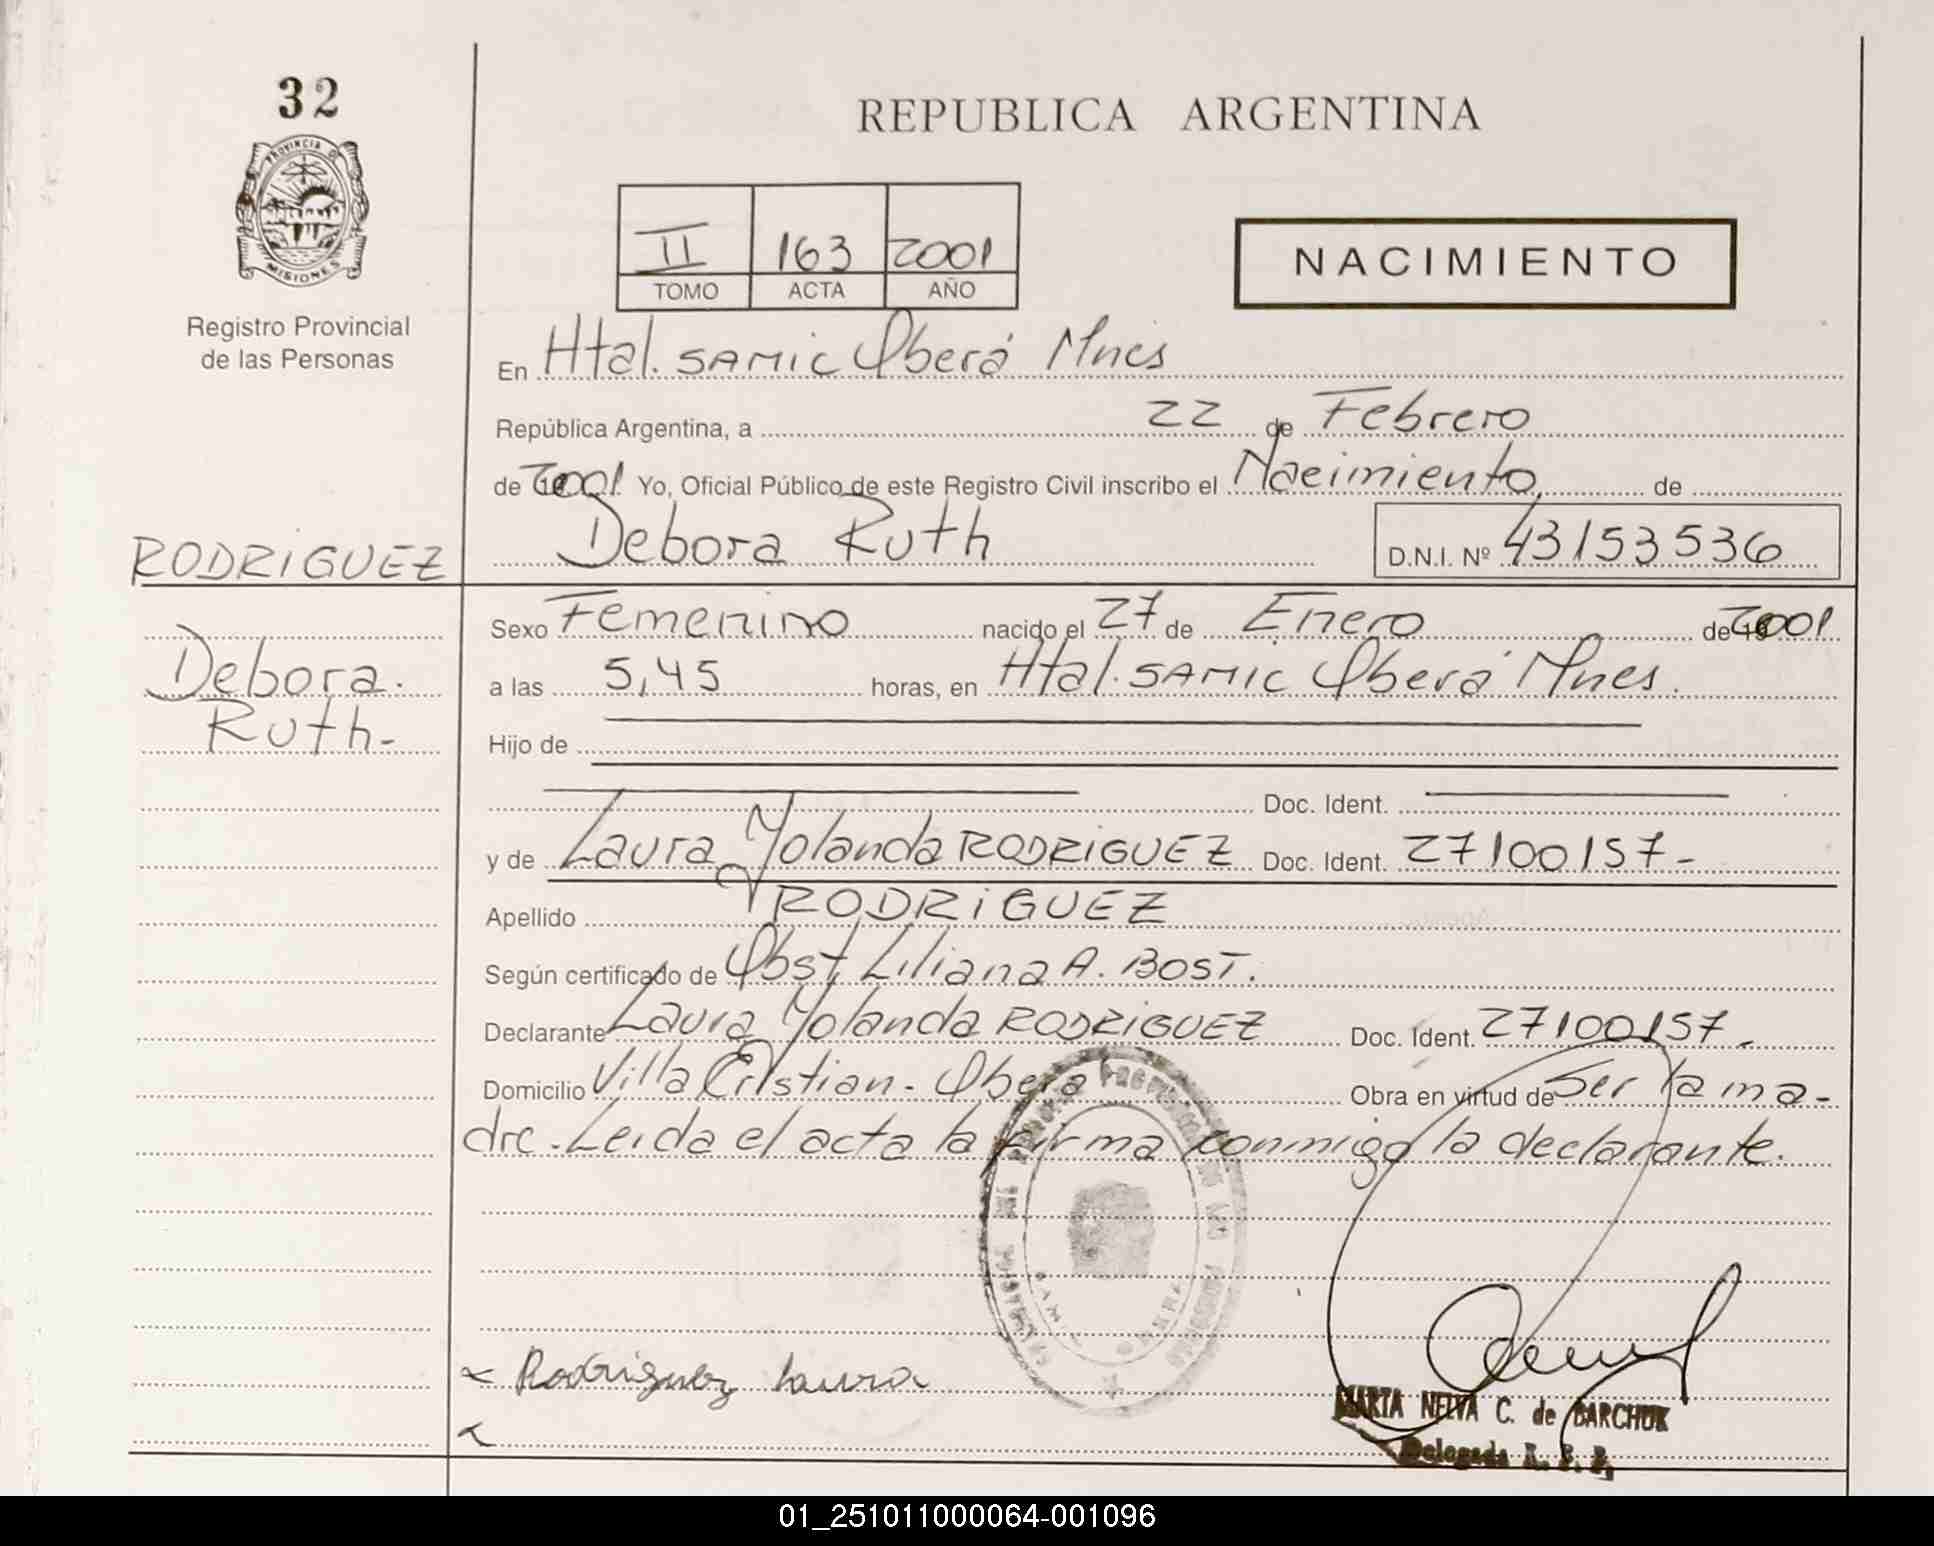 32
PROVINCIA DE
MISIONES
Registro Provincial
de las Personas
REPUBLICA ARGENTINA
II 163 2001
TOMO ACTA AÑO
NACIMIENTO
En Htal. SAMIC Oberá Mnes
República Argentina, a 22 de Febrero
de 2001 Yo, Oficial Público de este Registro Civil inscribo el Nacimiento, de
Debora Ruth D.N.I. Nº 43153536
RODRIGUEZ
Debora.
Ruth-
Sexo Femenino nacido el 27 de Enero de 2001
a las 5,45 horas, en Htal. SAMIC Oberá Mnes.
Hijo de
Doc. Ident.
y de Laura Yolanda RODRIGUEZ Doc. Ident. 27100157-
Apellido RODRIGUEZ
Según certificado de Obst. Liliana A. BOST.
Declarante Laura Yolanda RODRIGUEZ Doc. Ident. 27100157-
Domicilio Villa Cristian - Oberá Obra en virtud de Ser la ma-
dre. Leida el acta la firma conmigo la declarante.
Rodriguez Laura
MARTA NELVA C. de BARCHUK
Delegada R. P. P.
01_251011000064-001096